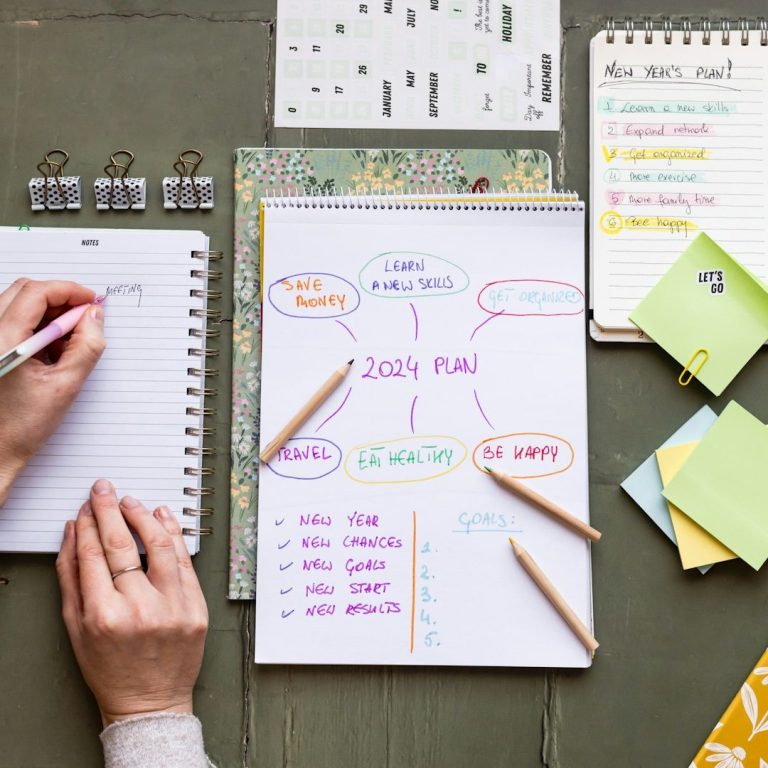 3
11
20
0
9
17
25
JANUARY
MAY
JULY
SEPTEMBER
!
TO
HOLIDAY
Important
Day off
REMEMBER
NEW YEAR'S PLAN!
1 Learn a new skills
2 Expand network
3 Get organized
4 more exercise
5 More family time
6 Bee happy
LET'S
GO
NOTES
MEETING
SAVE
MONEY
LEARN
A NEW SKILLS
GET ORGANIZED
2024 PLAN
TRAVEL
EAT HEALTHY
BE HAPPY
✓ NEW YEAR
✓ NEW CHANCES
✓ NEW GOALS
✓ NEW START
✓ NEW RESULTS
GOALS:
1.
2.
3.
4.
5.